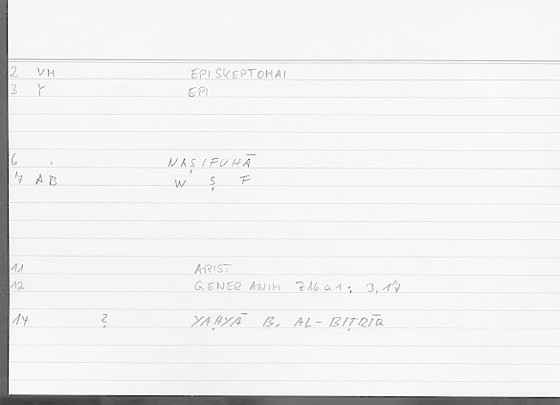 2 VM EPISKEPTOMAI
3 Y EPI
6 . NAṢIFUHĀ
7 AB W Ṣ F
11 ARIST
12 GENER ANIM 716a1; 3,17
14 ? YAḤYĀ B. AL-BIṬRĪQ